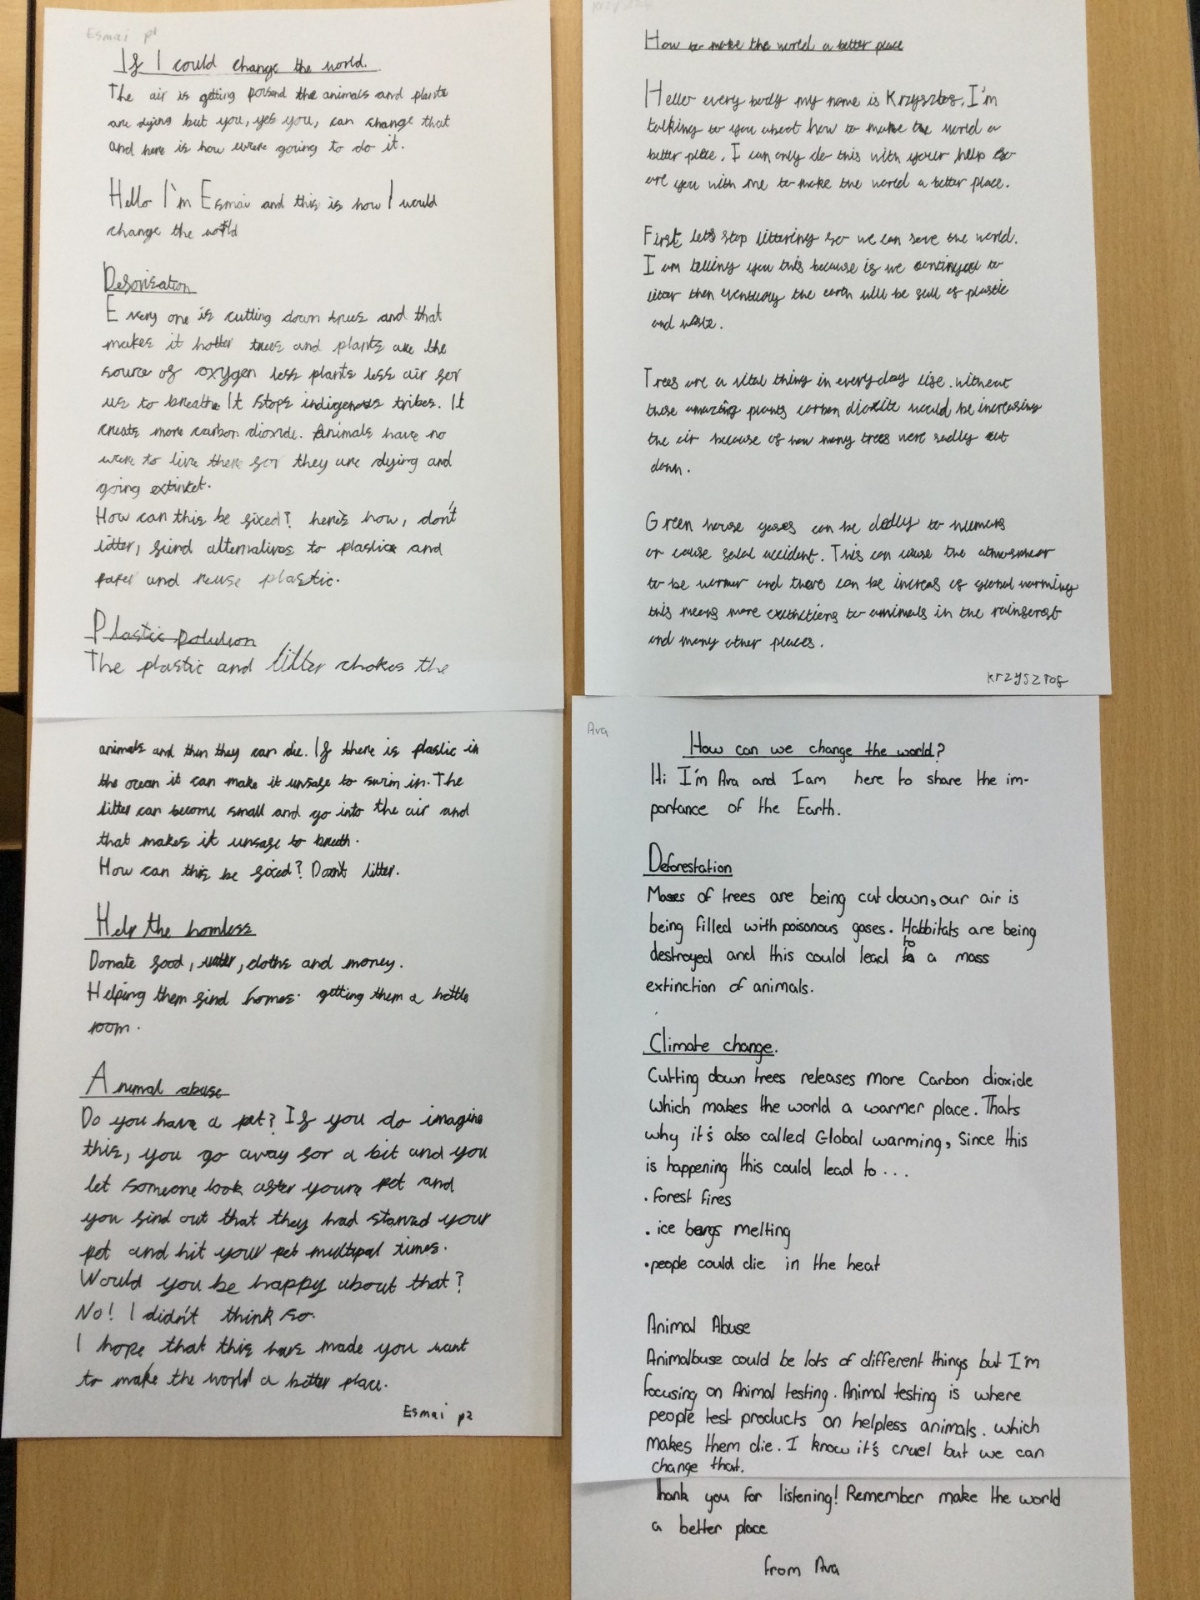 Esmai p1
If I could change the world.
The air is getting poisend the animals and plants
are dying but you, yes you, can change that
and here is how were going to do it.
Hello I'm Esmai and this is how I would
change the world
Every one is cutting down trees and that
makes it hotter trees and plants are the
source of oxygen less plants less air for
us to breathe It stops indigenous tribes. It
creats more carbon dioxide. Animals have no
were to live there for they are dying and
going extinket.
How can this be fixed? here's how, don't
litter, find alternatives to plastic and
paper and reuse plastic.
Plastic polution
The plastic and litter chokes the
animals and then they can die. If there is plastic in
the ocean it can make it unsafe to swim in. The
litter can become small and go into the air and
that makes it unsafe to breath.
How can this be fixed? Don't litter.
Help the homless
Donate food, water, cloths and money.
Helping them find homes. getting them a hottle
room.
Animal abuse
Do you have a pet? If you do imagine
this, you go away for a bit and you
let someone look after youre pet and
you find out that they had starved your
pet and hit your pet multipal times.
Would you be happy about that?
No! I didn't think so.
I hope that this have made you want
to make the world a better place.
Esmai p2
How to make the world a better place
Hello every body my name is Krzysztof, I'm
talking to you about how to make the world a
better place. I can only do this with your help so
are you with me to make the world a better place.
First let's stop littering so we can save the world.
I am telling you this because if we continyou to
litter then eventuory the earth will be full of plastic
and waste.
Trees are a vital thing in everyday life. without
these amazing plants carbon dioxite would be increasing
the air because of how many trees were sadly cut
down.
Green house gases can be dedly to humens
or cause fatal accident. This can cause the
to be warmer and there can be increas of global warming
this means more exctinctions to animals in the rainforest
and many other places.
Krzysztof
Ava
How can we change the world?
Hi I'm Ava and I am here to share the im-
portance of the Earth.
Deforestation
Mases of trees are being cut down, our air is
being filled with poisonous gases. Habbitats are being
destroyed and this could lead to a mass
extinction of animals.
Climate change.
Cutting down trees releases more Carbon dioxide
which makes the world a warmer place. Thats
why it's also called Global warming, Since this
is happening this could lead to...
• forest fires
• ice bergs melting
• people could die in the heat
Animal Abuse
Animalbuse could be lots of different things but I'm
focusing on Animal testing. Animal testing is where
people test products on helpless animals. which
makes them die. I know it's cruel but we can
change that.
Thank you for listening! Remember make the world
a better place
from Ava